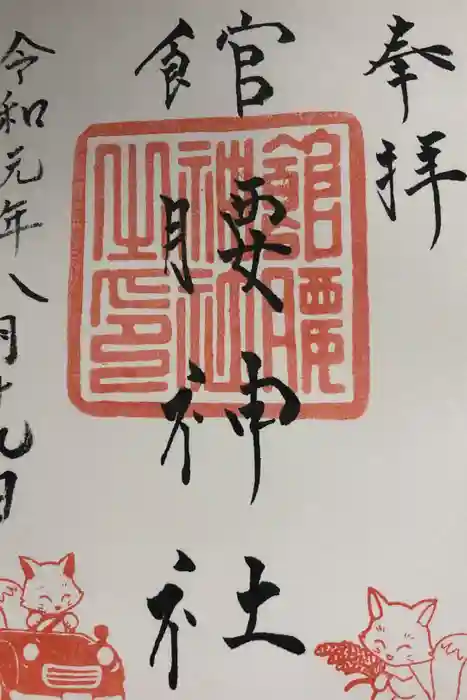 奉拝
館腰神社
館腰神社之印
令和元年八月十九日